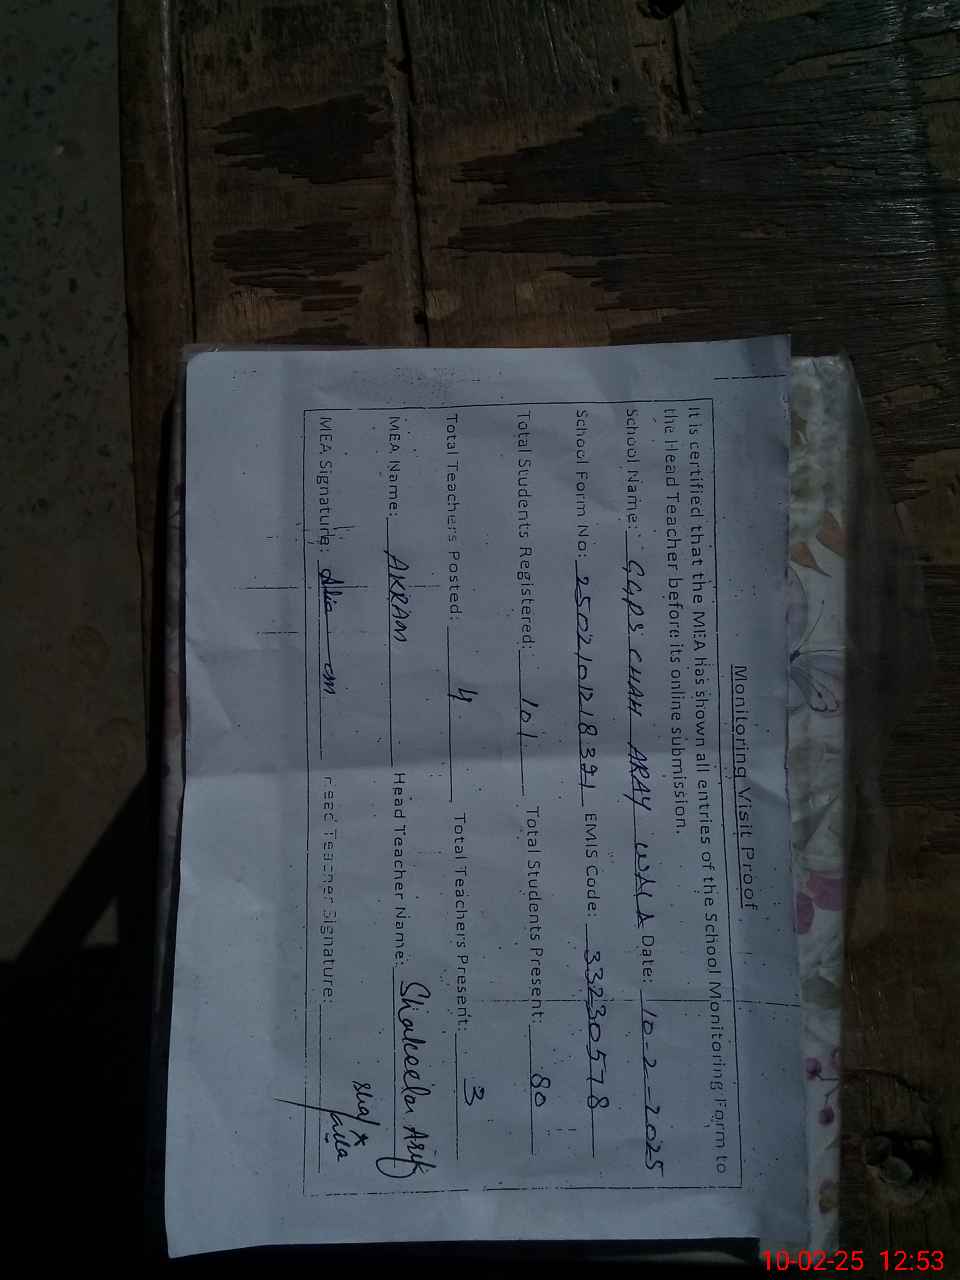 Monitoring Visit Proof
It is certified that the MEA has shown all entries of the School Monitoring Form to
the Head Teacher before its online submission.
School Name: GGPS CHAH ARAY WALA Date: 10-2-2025
School Form No: 2502101218391 EMIS Code: 33230578
Total Students Registered: 101 Total Students Present: 80
Total Teachers Posted: 4 Total Teachers Present: 3
MEA Name: AKRAM Head Teacher Name: Shakeela Asif
MEA Signature: Head Teacher Signature:
10-02-25 12:53